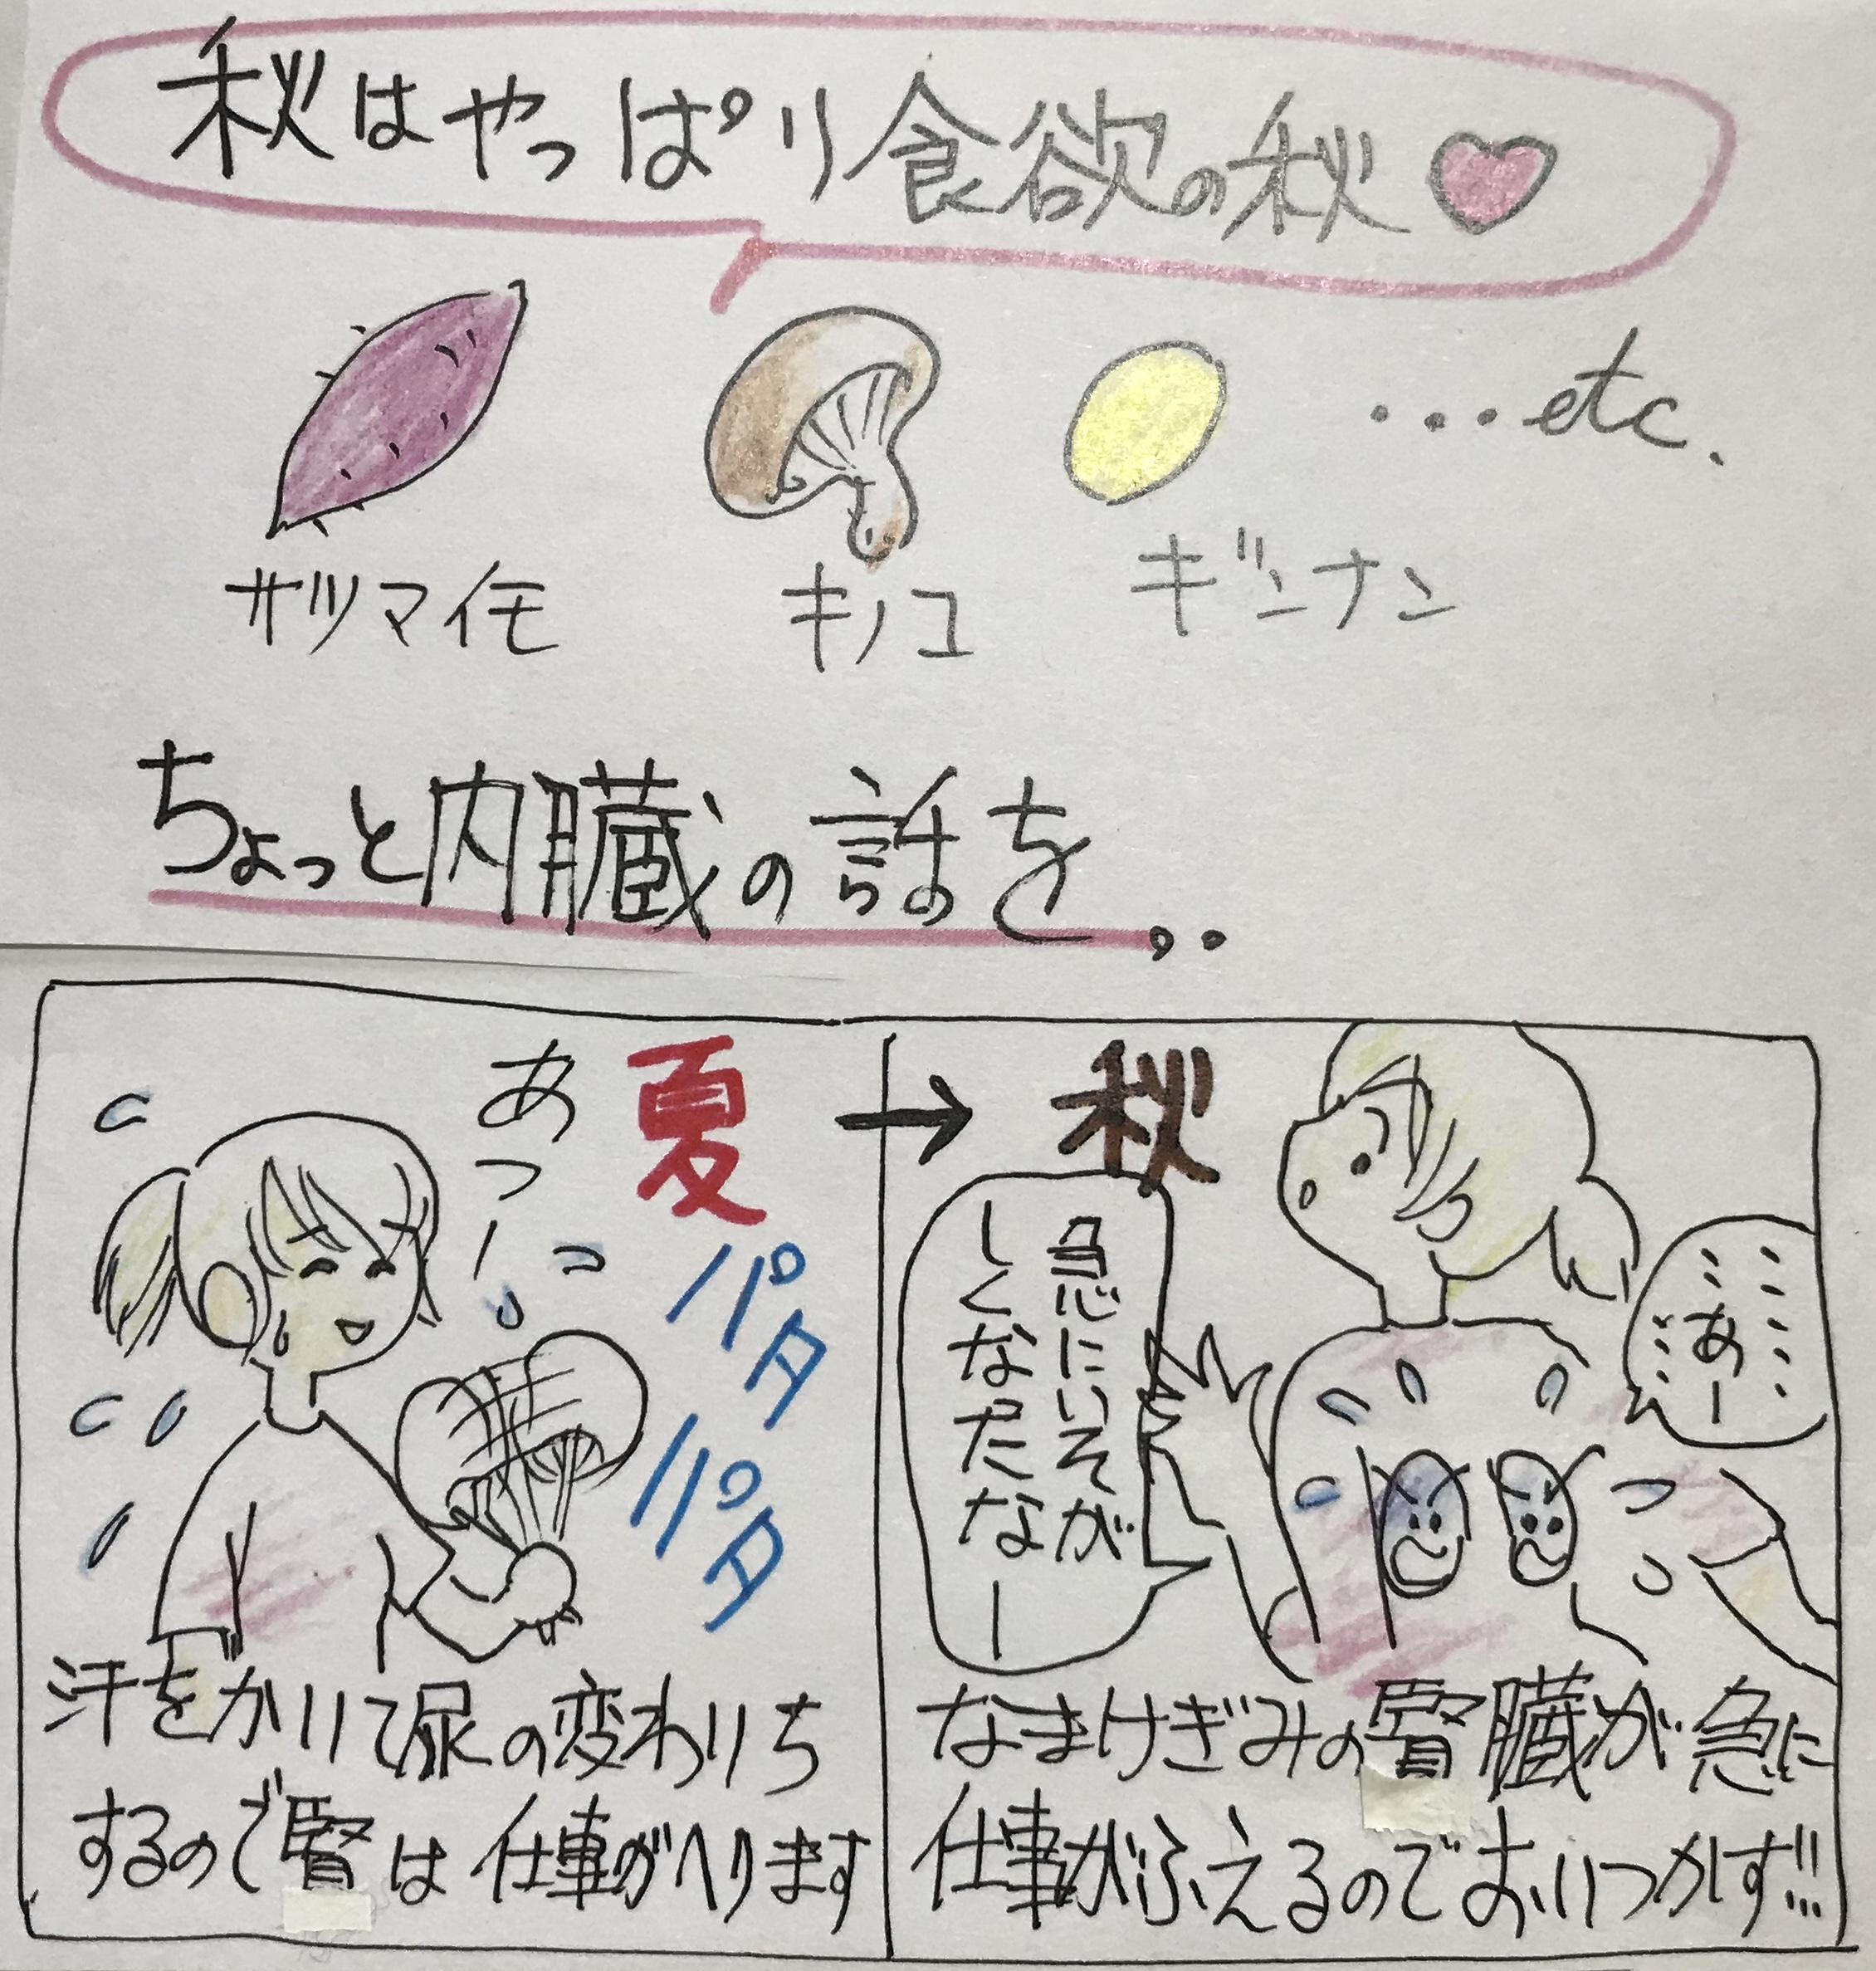 秋はやっぱり食欲の秋♡
サツマイモ
キノコ
ギンナン
...etc.
ちょっと内臓の話を..
夏→秋
あっー
パタ
パタ
汗をかいて尿の変わりち
するので腎は仕事がへります
急にいそが
しくなったなー
あー
なまけぎみの腎臓が急に
仕事がふえるのでおいつかず!!!